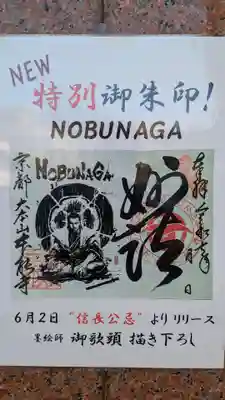 NEW
特別御朱印!
NOBUNAGA
奉拝 令和 年
月 日
NOBUNAGA
妙法
京都 大本山本能寺
6月2日 "信長公忌" よりリリース
墨絵師 御歌頭 描き下ろし